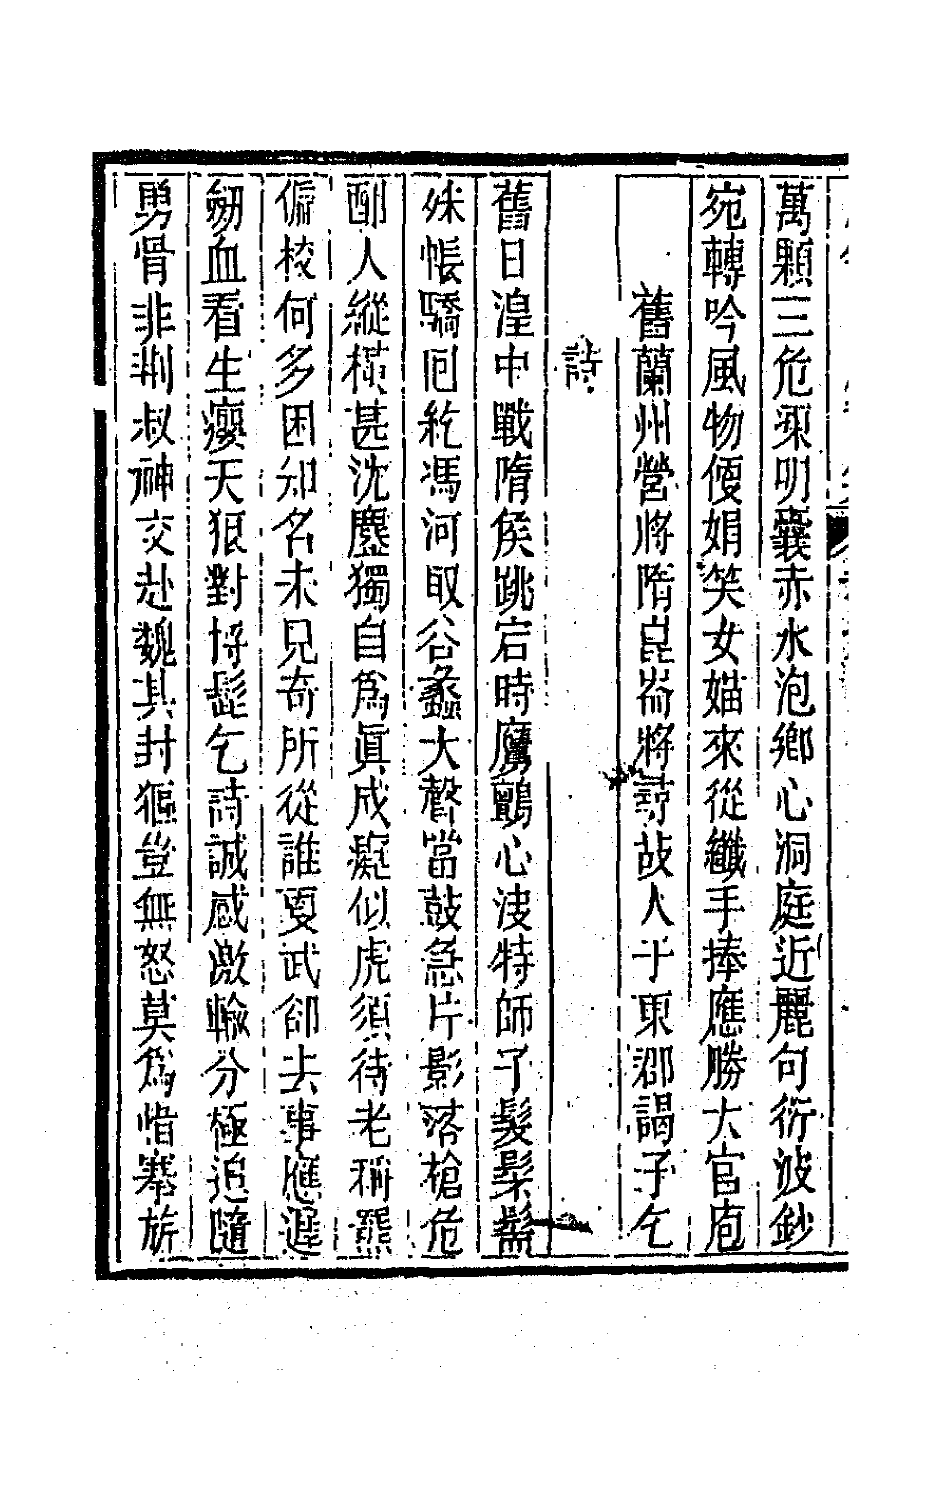 萬顆三危深明囊赤水泡鄉心洞庭近麗句衍波鈔
宛轉吟風物便娟笑女媌來從纖手捧應勝大官庖
舊蘭州營將隋昆崙將尋故人于東郡謁予乞
詩
舊日湟中戰隋侯跳宕時鷹鸇心洩特師子髮髤鬗
妹帳驕囘紇馮河取谷蠡大聲當鼓急片影落槍危
酣人縱橫甚沈鏖獨自爲眞成癡似虎須待老稱羆
偏校何多困知名未見奇所從誰更武卻去事應遲
剱血看生癭天狼對捋髭乞詩誠感激輸分極追隨
勇骨非荆叔神交赴魏其封猵豈無怒莫爲惜搴旂